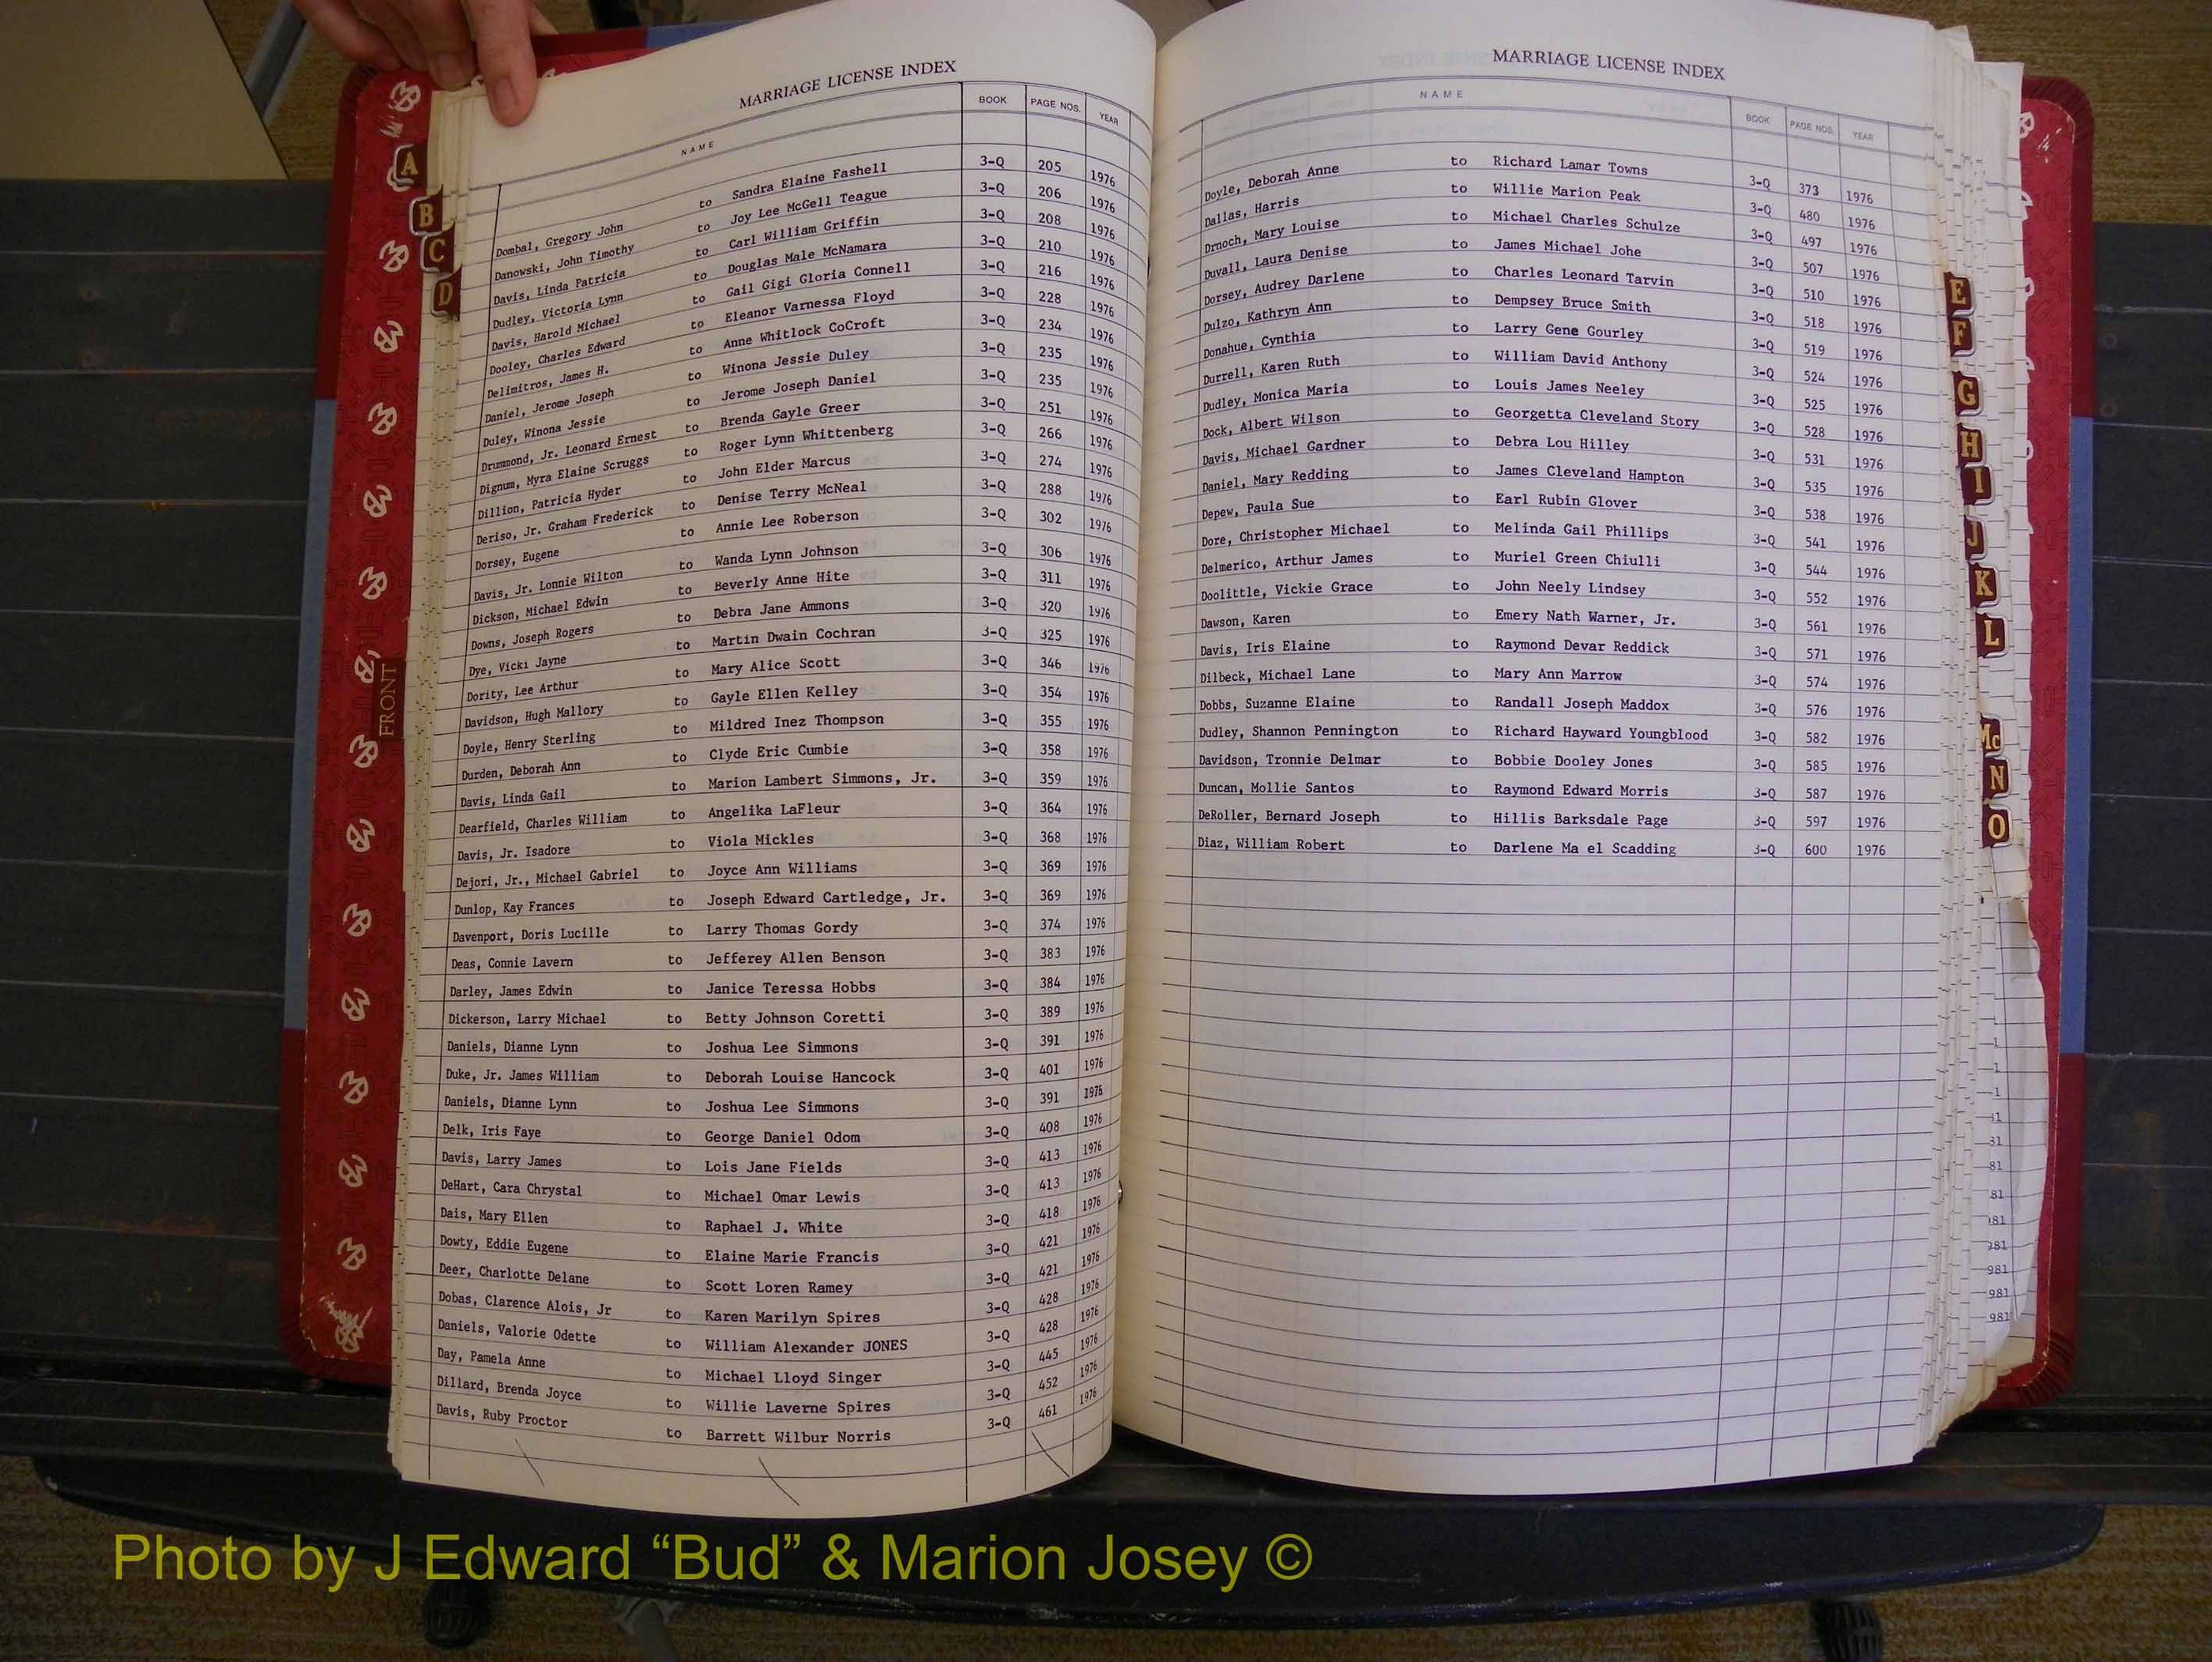 MARRIAGE LICENSE INDEX
NAME BOOK PAGE NOS. YEAR
Dombal, Gregory John to Sandra Elaine Fashell 3-Q 205 1976
Danowski, John Timothy to Joy Lee McGell Teague 3-Q 206 1976
Davis, Linda Patricia to Carl William Griffin 3-Q 208 1976
Dudley, Victoria Lynn to Douglas Male McNamara 3-Q 210 1976
Davis, Harold Michael to Gail Gigi Gloria Connell 3-Q 216 1976
Dooley, Charles Edward to Eleanor Varnessa Floyd 3-Q 228 1976
Delimitros, James H. to Anne Whitlock CoCroft 3-Q 234 1976
Daniel, Jerome Joseph to Winona Jessie Duley 3-Q 235 1976
Duley, Winona Jessie to Jerome Joseph Daniel 3-Q 235 1976
Drummond, Jr. Leonard Ernest to Brenda Gayle Greer 3-Q 251 1976
Dignum, Myra Elaine Scruggs to Roger Lynn Whittenberg 3-Q 266 1976
Dillion, Patricia Hyder to John Elder Marcus 3-Q 274 1976
Deriso, Jr. Graham Frederick to Denise Terry McNeal 3-Q 288 1976
Dorsey, Eugene to Annie Lee Roberson 3-Q 302 1976
Davis, Jr. Lonnie Wilton to Wanda Lynn Johnson 3-Q 306 1976
Dickson, Michael Edwin to Beverly Anne Hite 3-Q 311 1976
Downs, Joseph Rogers to Debra Jane Ammons 3-Q 320 1976
Dye, Vicki Jayne to Martin Dwain Cochran 3-Q 325 1976
Dority, Lee Arthur to Mary Alice Scott 3-Q 346 1976
Davidson, Hugh Mallory to Gayle Ellen Kelley 3-Q 354 1976
Doyle, Henry Sterling to Mildred Inez Thompson 3-Q 355 1976
Durden, Deborah Ann to Clyde Eric Cumbie 3-Q 358 1976
Davis, Linda Gail to Marion Lambert Simmons, Jr. 3-Q 359 1976
Dearfield, Charles William to Angelika LaFleur 3-Q 364 1976
Davis, Jr. Isadore to Viola Mickles 3-Q 368 1976
Dejori, Jr., Michael Gabriel to Joyce Ann Williams 3-Q 369 1976
Dunlop, Kay Frances to Joseph Edward Cartledge, Jr. 3-Q 369 1976
Davenport, Doris Lucille to Larry Thomas Gordy 3-Q 374 1976
Deas, Connie Lavern to Jefferey Allen Benson 3-Q 383 1976
Darley, James Edwin to Janice Teressa Hobbs 3-Q 384 1976
Dickerson, Larry Michael to Betty Johnson Coretti 3-Q 389 1976
Daniels, Dianne Lynn to Joshua Lee Simmons 3-Q 391 1976
Duke, Jr. James William to Deborah Louise Hancock 3-Q 401 1976
Daniels, Dianne Lynn to Joshua Lee Simmons 3-Q 391 1976
Delk, Iris Faye to George Daniel Odom 3-Q 408 1976
Davis, Larry James to Lois Jane Fields 3-Q 413 1976
DeHart, Cara Chrystal to Michael Omar Lewis 3-Q 413 1976
Dais, Mary Ellen to Raphael J. White 3-Q 418 1976
Dowty, Eddie Eugene to Elaine Marie Francis 3-Q 421 1976
Deer, Charlotte Delane to Scott Loren Ramey 3-Q 421 1976
Dobas, Clarence Alois, Jr to Karen Marilyn Spires 3-Q 428 1976
Daniels, Valorie Odette to William Alexander JONES 3-Q 428 1976
Day, Pamela Anne to Michael Lloyd Singer 3-Q 445 1976
Dillard, Brenda Joyce to Willie Laverne Spires 3-Q 452 1976
Davis, Ruby Proctor to Barrett Wilbur Norris 3-Q 461 1976
MARRIAGE LICENSE INDEX
NAME BOOK PAGE NOS. YEAR
Doyle, Deborah Anne to Richard Lamar Towns 3-Q 373 1976
Dallas, Harris to Willie Marion Peak 3-Q 480 1976
Drnoch, Mary Louise to Michael Charles Schulze 3-Q 497 1976
Duvall, Laura Denise to James Michael Johe 3-Q 507 1976
Dorsey, Audrey Darlene to Charles Leonard Tarvin 3-Q 510 1976
Dulzo, Kathryn Ann to Dempsey Bruce Smith 3-Q 518 1976
Donahue, Cynthia to Larry Gene Gourley 3-Q 519 1976
Durrell, Karen Ruth to William David Anthony 3-Q 524 1976
Dudley, Monica Maria to Louis James Neeley 3-Q 525 1976
Dock, Albert Wilson to Georgetta Cleveland Story 3-Q 528 1976
Davis, Michael Gardner to Debra Lou Hilley 3-Q 531 1976
Daniel, Mary Redding to James Cleveland Hampton 3-Q 535 1976
Depew, Paula Sue to Earl Rubin Glover 3-Q 538 1976
Dore, Christopher Michael to Melinda Gail Phillips 3-Q 541 1976
Delmerico, Arthur James to Muriel Green Chiulli 3-Q 544 1976
Doolittle, Vickie Grace to John Neely Lindsey 3-Q 552 1976
Dawson, Karen to Emery Nath Warner, Jr. 3-Q 561 1976
Davis, Iris Elaine to Raymond Devar Reddick 3-Q 571 1976
Dilbeck, Michael Lane to Mary Ann Marrow 3-Q 574 1976
Dobbs, Suzanne Elaine to Randall Joseph Maddox 3-Q 576 1976
Dudley, Shannon Pennington to Richard Hayward Youngblood 3-Q 582 1976
Davidson, Tronnie Delmar to Bobbie Dooley Jones 3-Q 585 1976
Duncan, Mollie Santos to Raymond Edward Morris 3-Q 587 1976
DeRoller, Bernard Joseph to Hillis Barksdale Page 3-Q 597 1976
Diaz, William Robert to Darlene Ma el Scadding 3-Q 600 1976
A
B
C
D
FRONT
E
F
G
H
I
J
K
L
Mc
N
O
Photo by J Edward “Bud” & Marion Josey ©